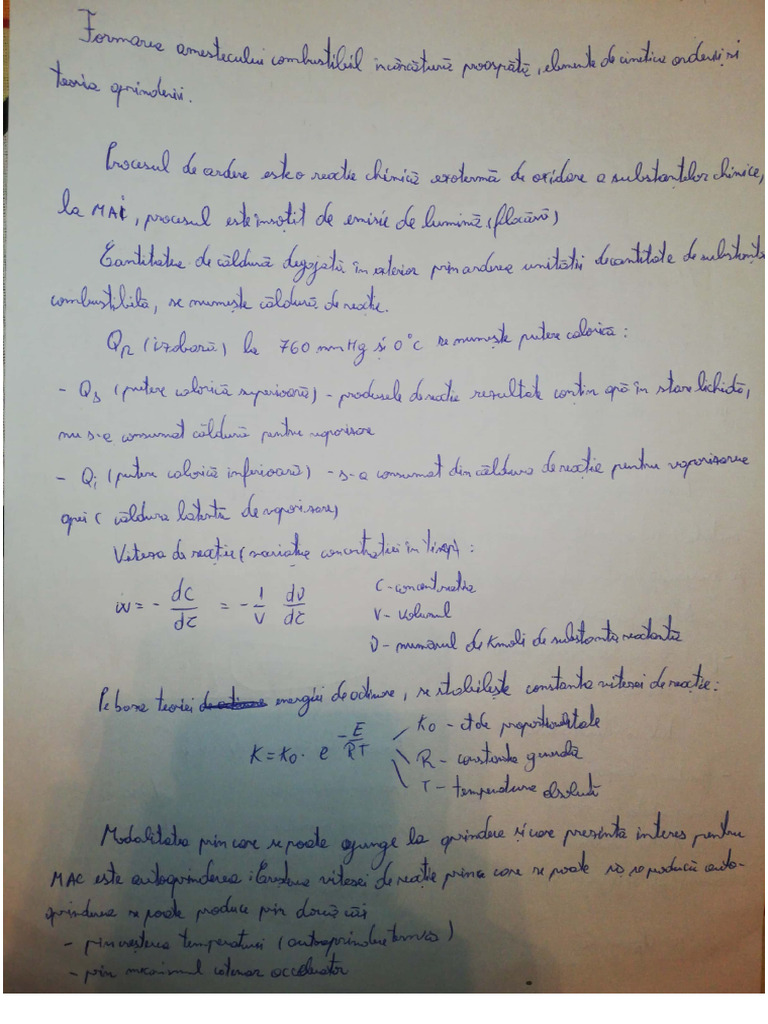 Formarea amestecului combustibil încărcătură proaspătă, elemente de cinetica arderii și
teoria aprinderii.
Procesul de ardere este o reacție chimică exotermă de oxidare a substanțelor chimice,
la MAI, procesul este însoțit de emisie de lumină (flacără)
Cantitatea de căldură degajată în exterior prin arderea unității de cantitate de substanță
combustibilă, se numește căldură de reacție.
(izobară) la 760 mmHg și 0°C se numește putere calorică:
- Qs (putere calorică superioară) - produsele de reacție rezultate conțin apă în stare lichidă,
nu s-a consumat căldură pentru vaporizare
- Qi (putere calorică inferioară) - s-a consumat din căldura de reacție pentru vaporizarea
apei (căldura latentă de vaporizare)
Viteza de reacție (variația concentrației în timp):
w = - dC/dτ = - 1/V dυ/dτ
C - concentrația
V - volumul
υ - numărul de Kmoli de substanță reactantă
Pe baza teoriei energiei de activare, se stabilește constanta vitezei de reacție:
K = K0 · e^(-E/RT)
K0 - ct de proporționalitate
R - constanta generală
T - temperatura absolută
Modalitatea prin care se poate ajunge la aprindere și care prezintă interes pentru
MAC este autoaprinderea. vitezei de reacție care se poate auto-
aprinderea se poate produce prin două căi
- prin creșterea temperaturii (autoaprindere termică)
- prin mecanismul catenar accelerator